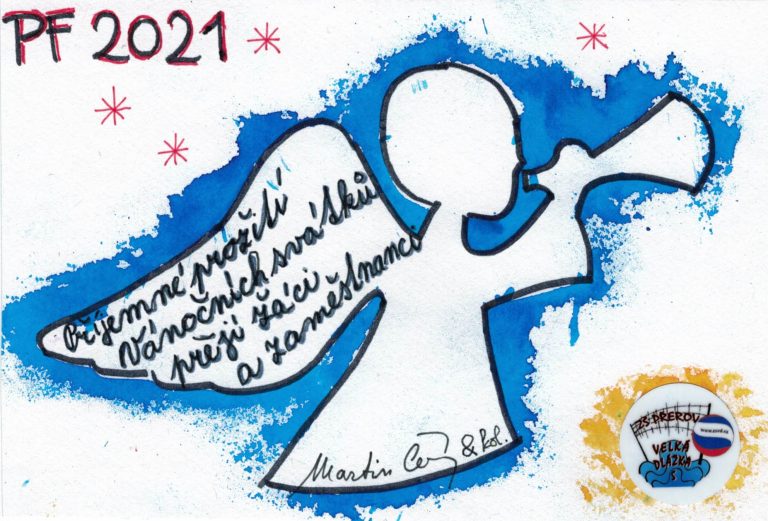 PF 2021
Příjemné prožití
Vánočních svátků
přejí žáci
a zaměstnanci
Martin & kol.
ZŠ PŘEROV
VELKÁ
DLÁŽKA
5